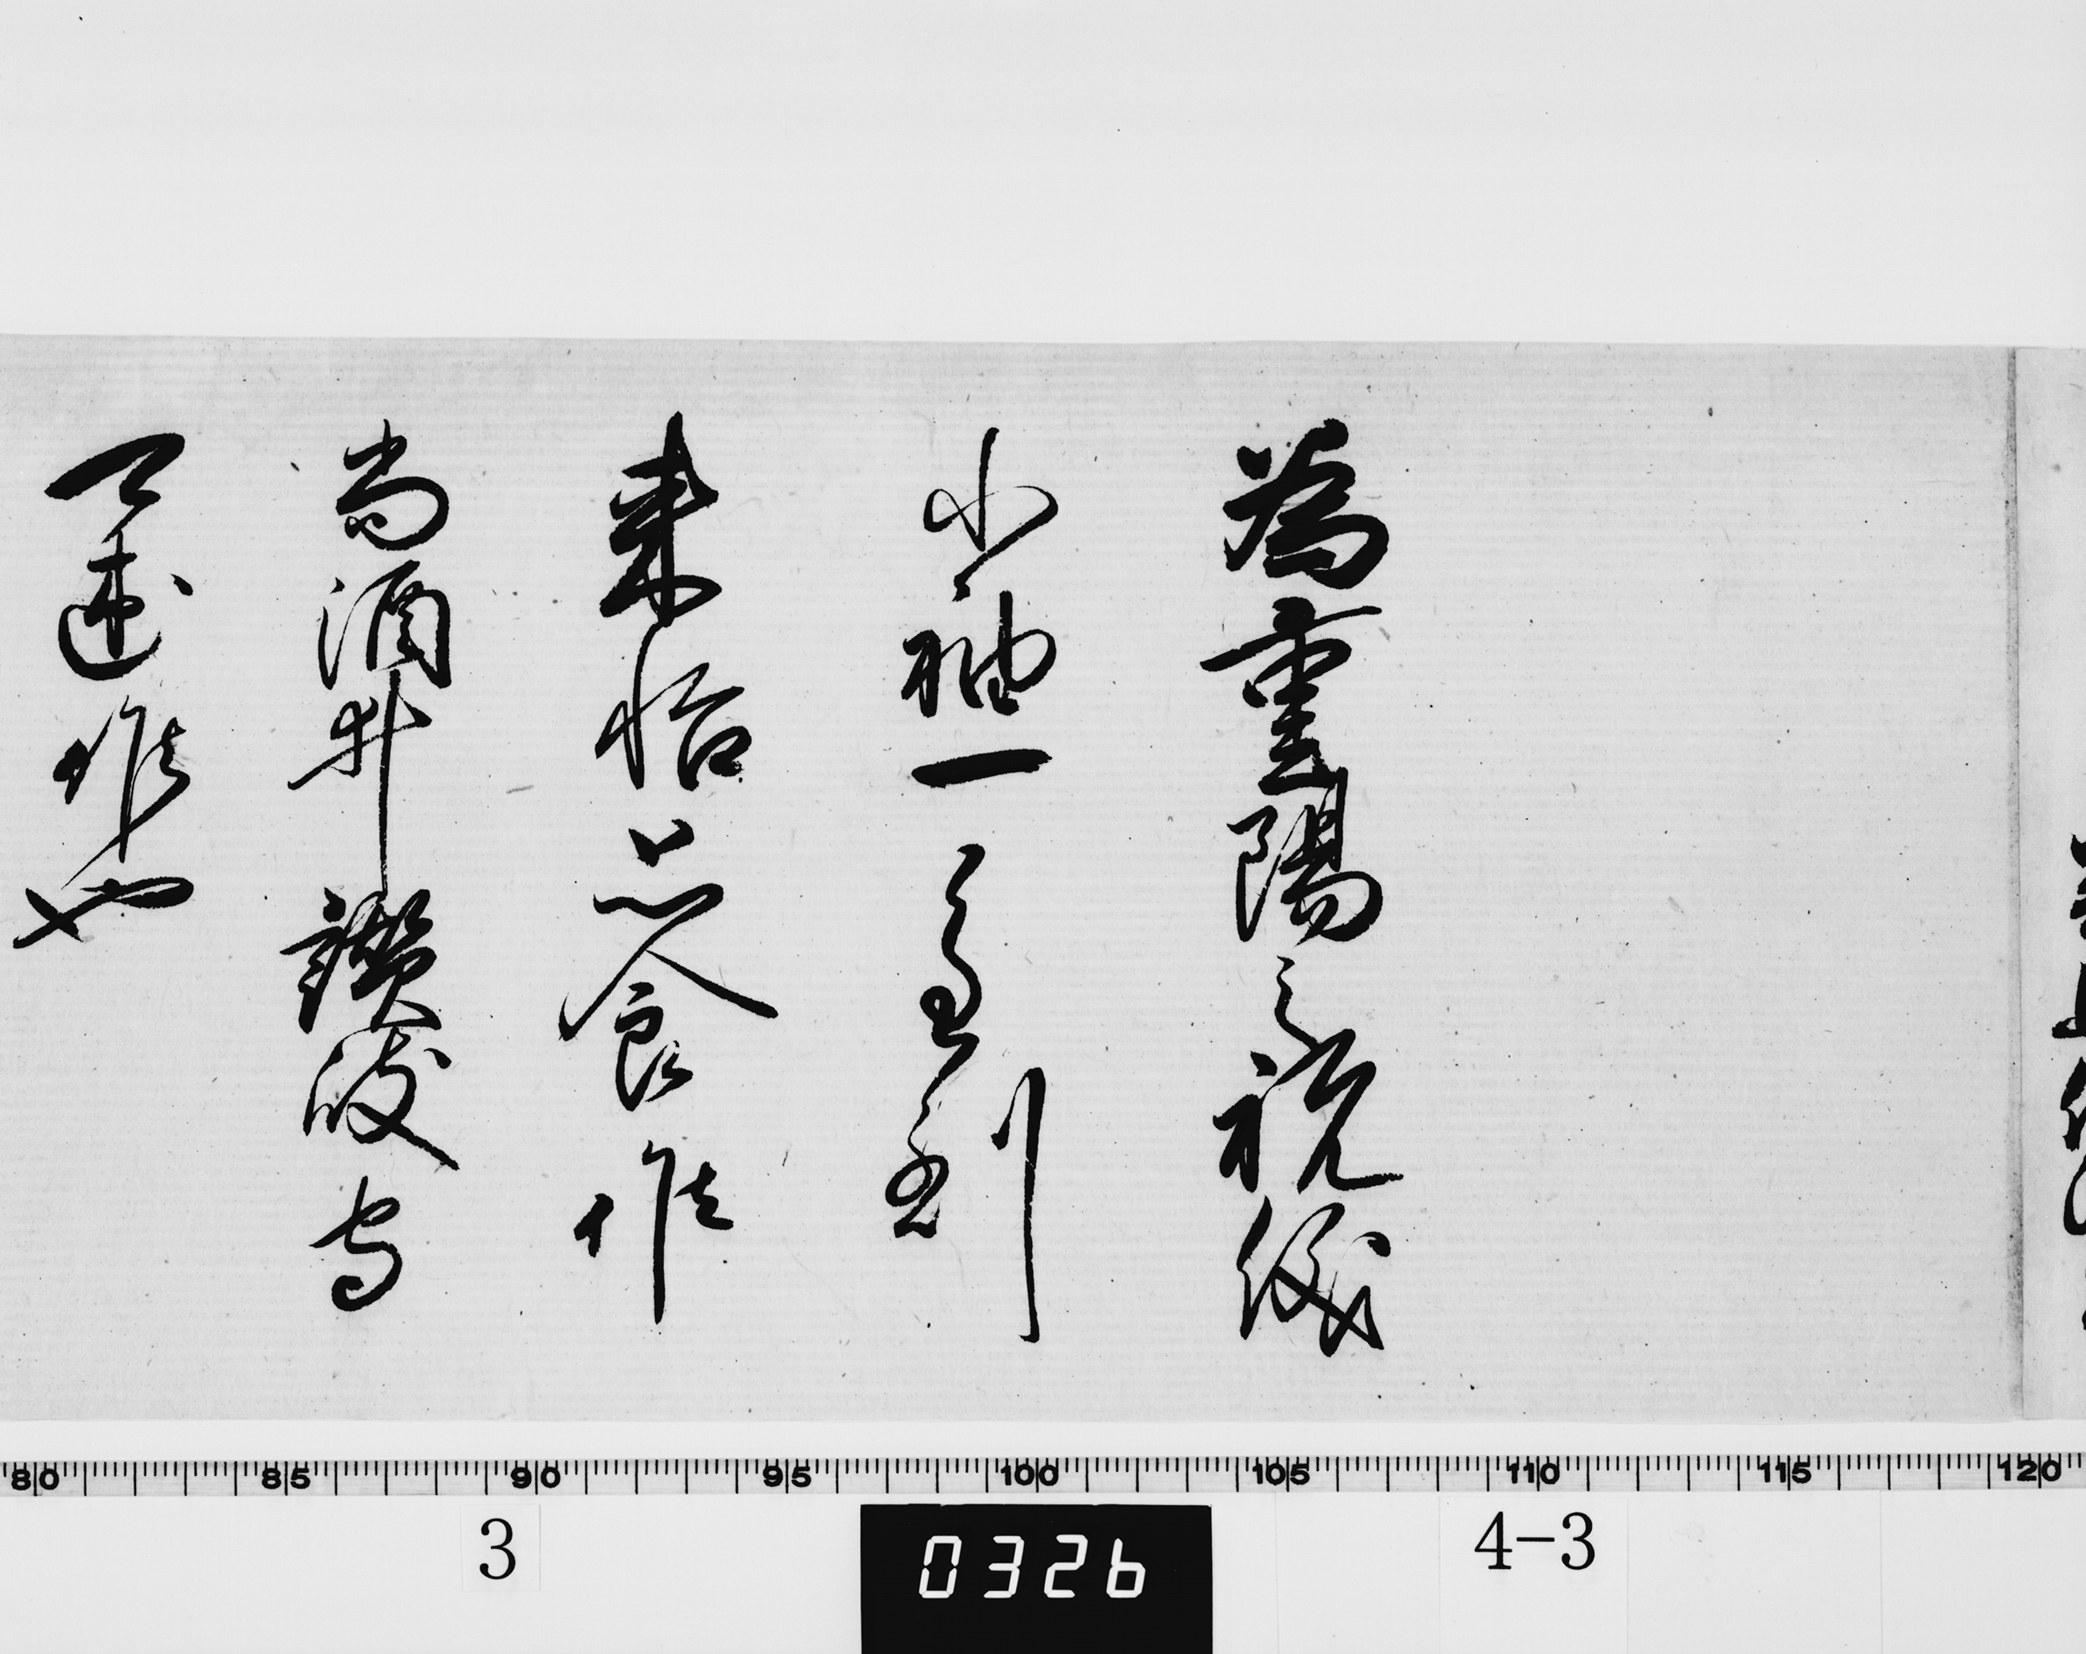 為重陽之祝儀
小袖一重到
来怡思食候
尚酒井讃岐守
可述候也
80 85 90 95 100 105 110 115 120
3
0326
4-3